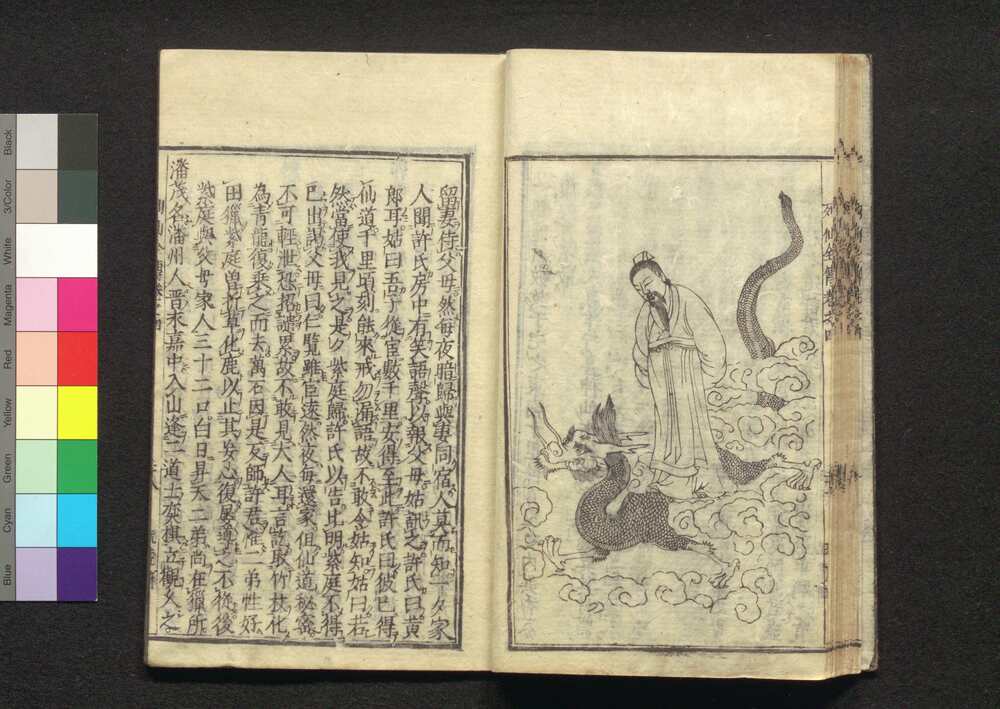 列仙全傳卷之四
留妻侍父母然每夜暗歸與妻同宿人莫而知一夕家
人聞許氏房中有笑語聲以報父母姑訊之許氏曰黄
郎耳姑曰吾子從官數千里安得至此許氏曰彼已得
仙道千里頃刻能來戒勿漏語故不敢令姑知姑曰若
然當使我見之是夕紫庭歸許氏以告比明紫庭不得
已出謁父母曰仁覽雖官遠然夜每還家但仙道秘密
不可輕泄恐招譴累故不敢見大人耳言訖取竹杖化
為青龍復乗之而去萬石因是反師許君惟二弟性好
田獵紫庭曽折草化鹿以止其妄心復屢導之不從後
紫庭與父母家人三十二口白日昇天二弟尚在獵所
潘茂名潘州人晋永嘉中入山逢二道士奕棋立觀久之
Black
3/Color
White
Magenta
Red
Yellow
Green
Cyan
Blue